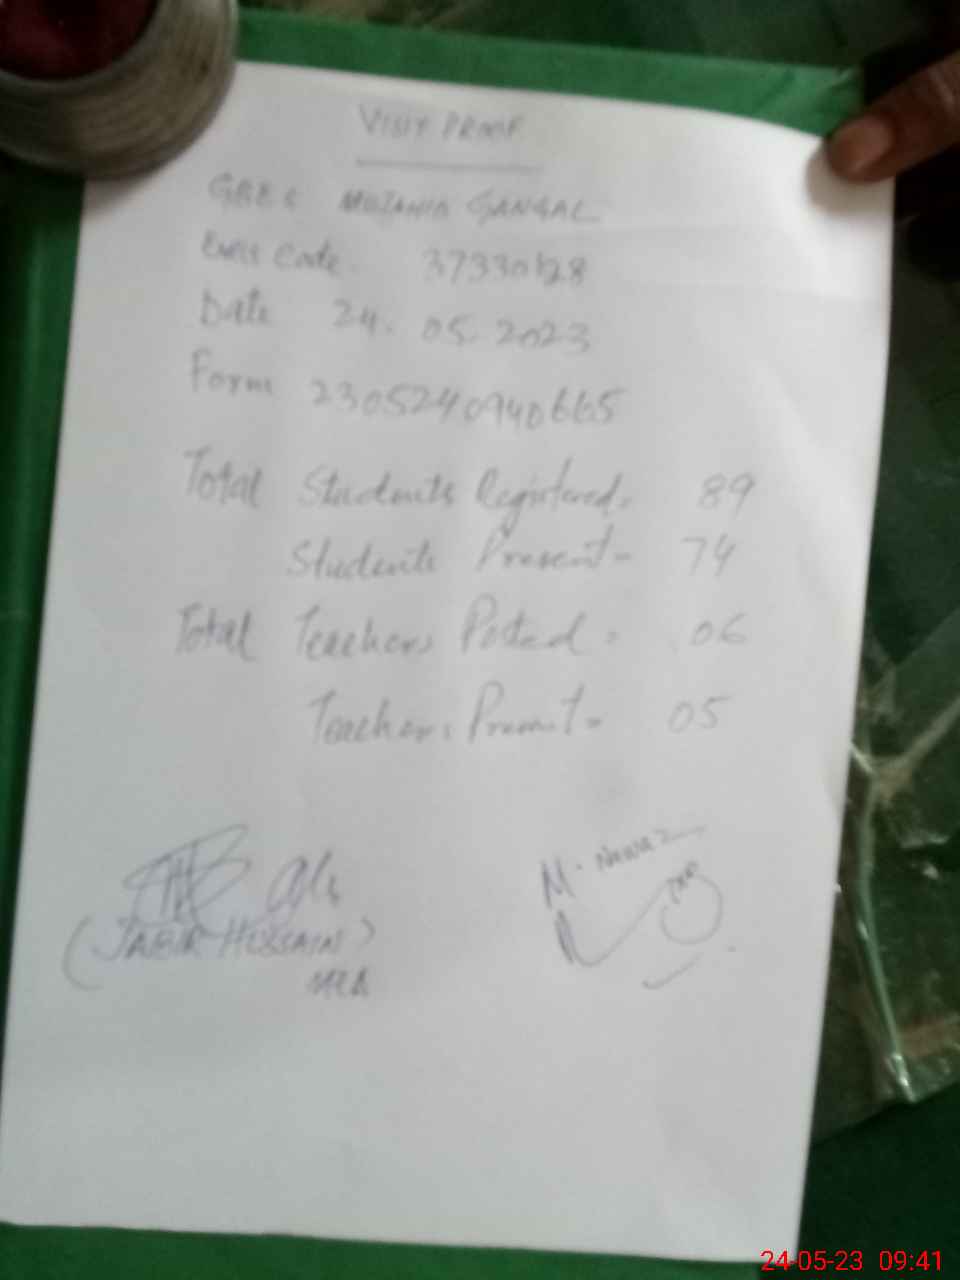 VISIT PROOF
GBES MOJAHIA GANGAL
EMIS Code. 37330128
Date 24. 05. 2023
Form 2305240940665
Total Students Registered. 89
Students Present = 74
Total Teachers Posted = 06
Teachers Present = 05
M. Nawaz
(JABIR HUSSAIN)
MEA
24-05-23 09:41